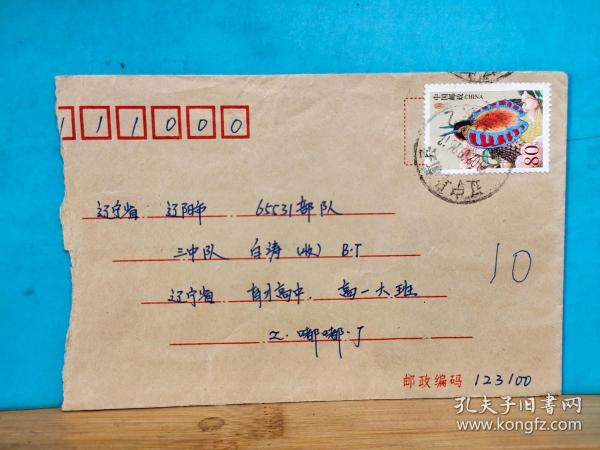 111000
中国邮政 CHINA
80
辽宁省 辽阳市 65531部队
三中队 白涛(收) B.T
辽宁省 育才高中. 高一大班
Z.嘟嘟.J
10
邮政编码 123100
孔夫子旧书网
www.kongfz.com